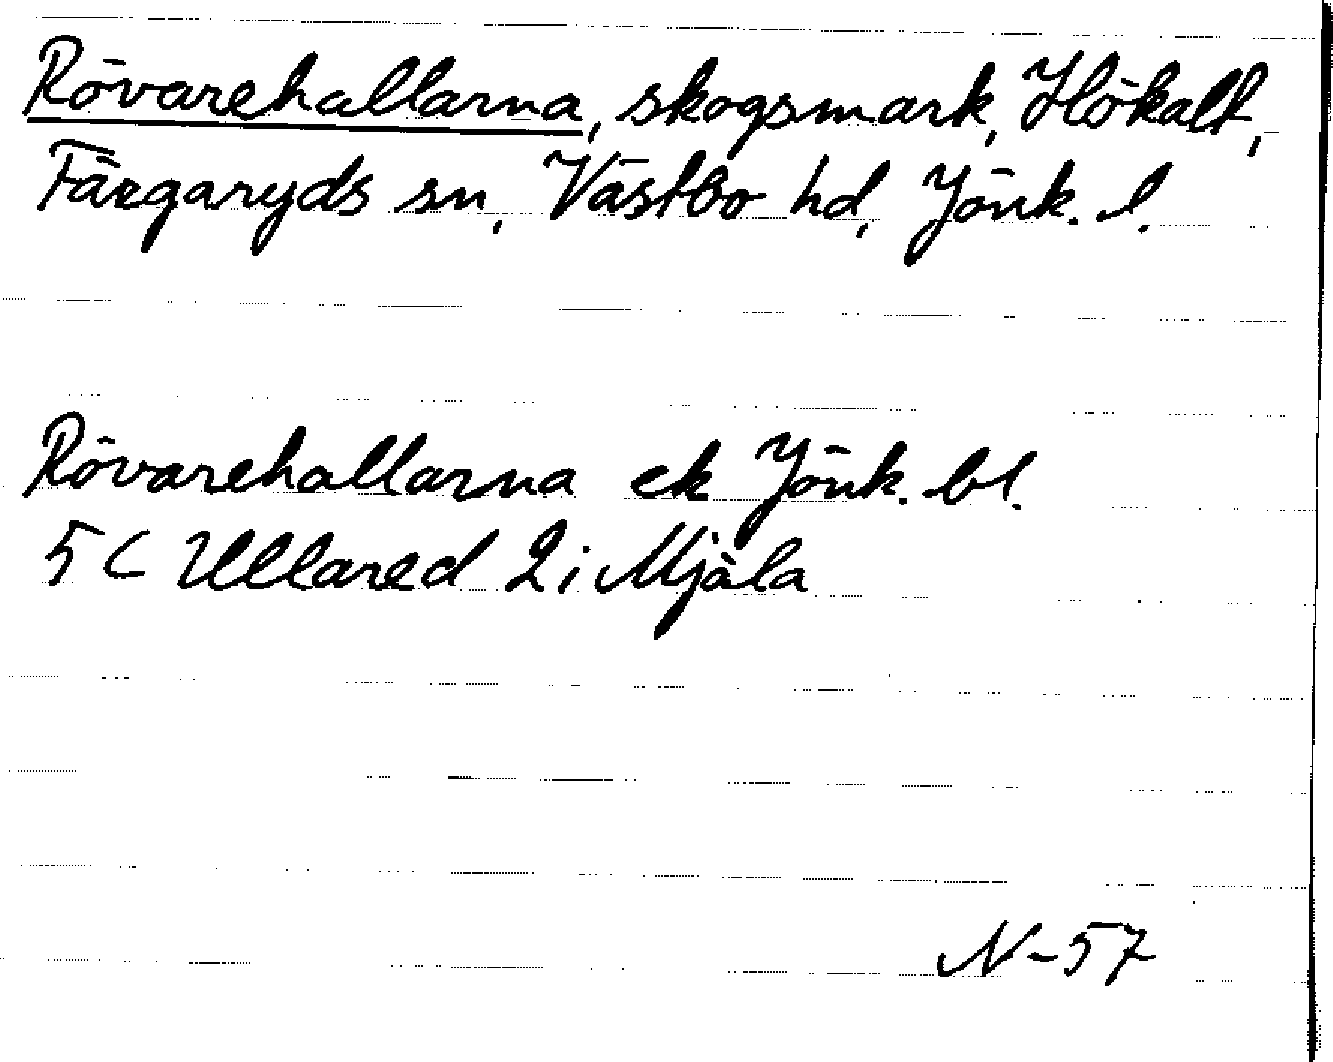 Rövarehallarna, skogsmark, Hökalt,
Färgaryds sn, Västbo hd, Jönk. l.
Rövarehallarna ek Jönk. bl.
5 C Ullared 2 i Mjäla
N-57